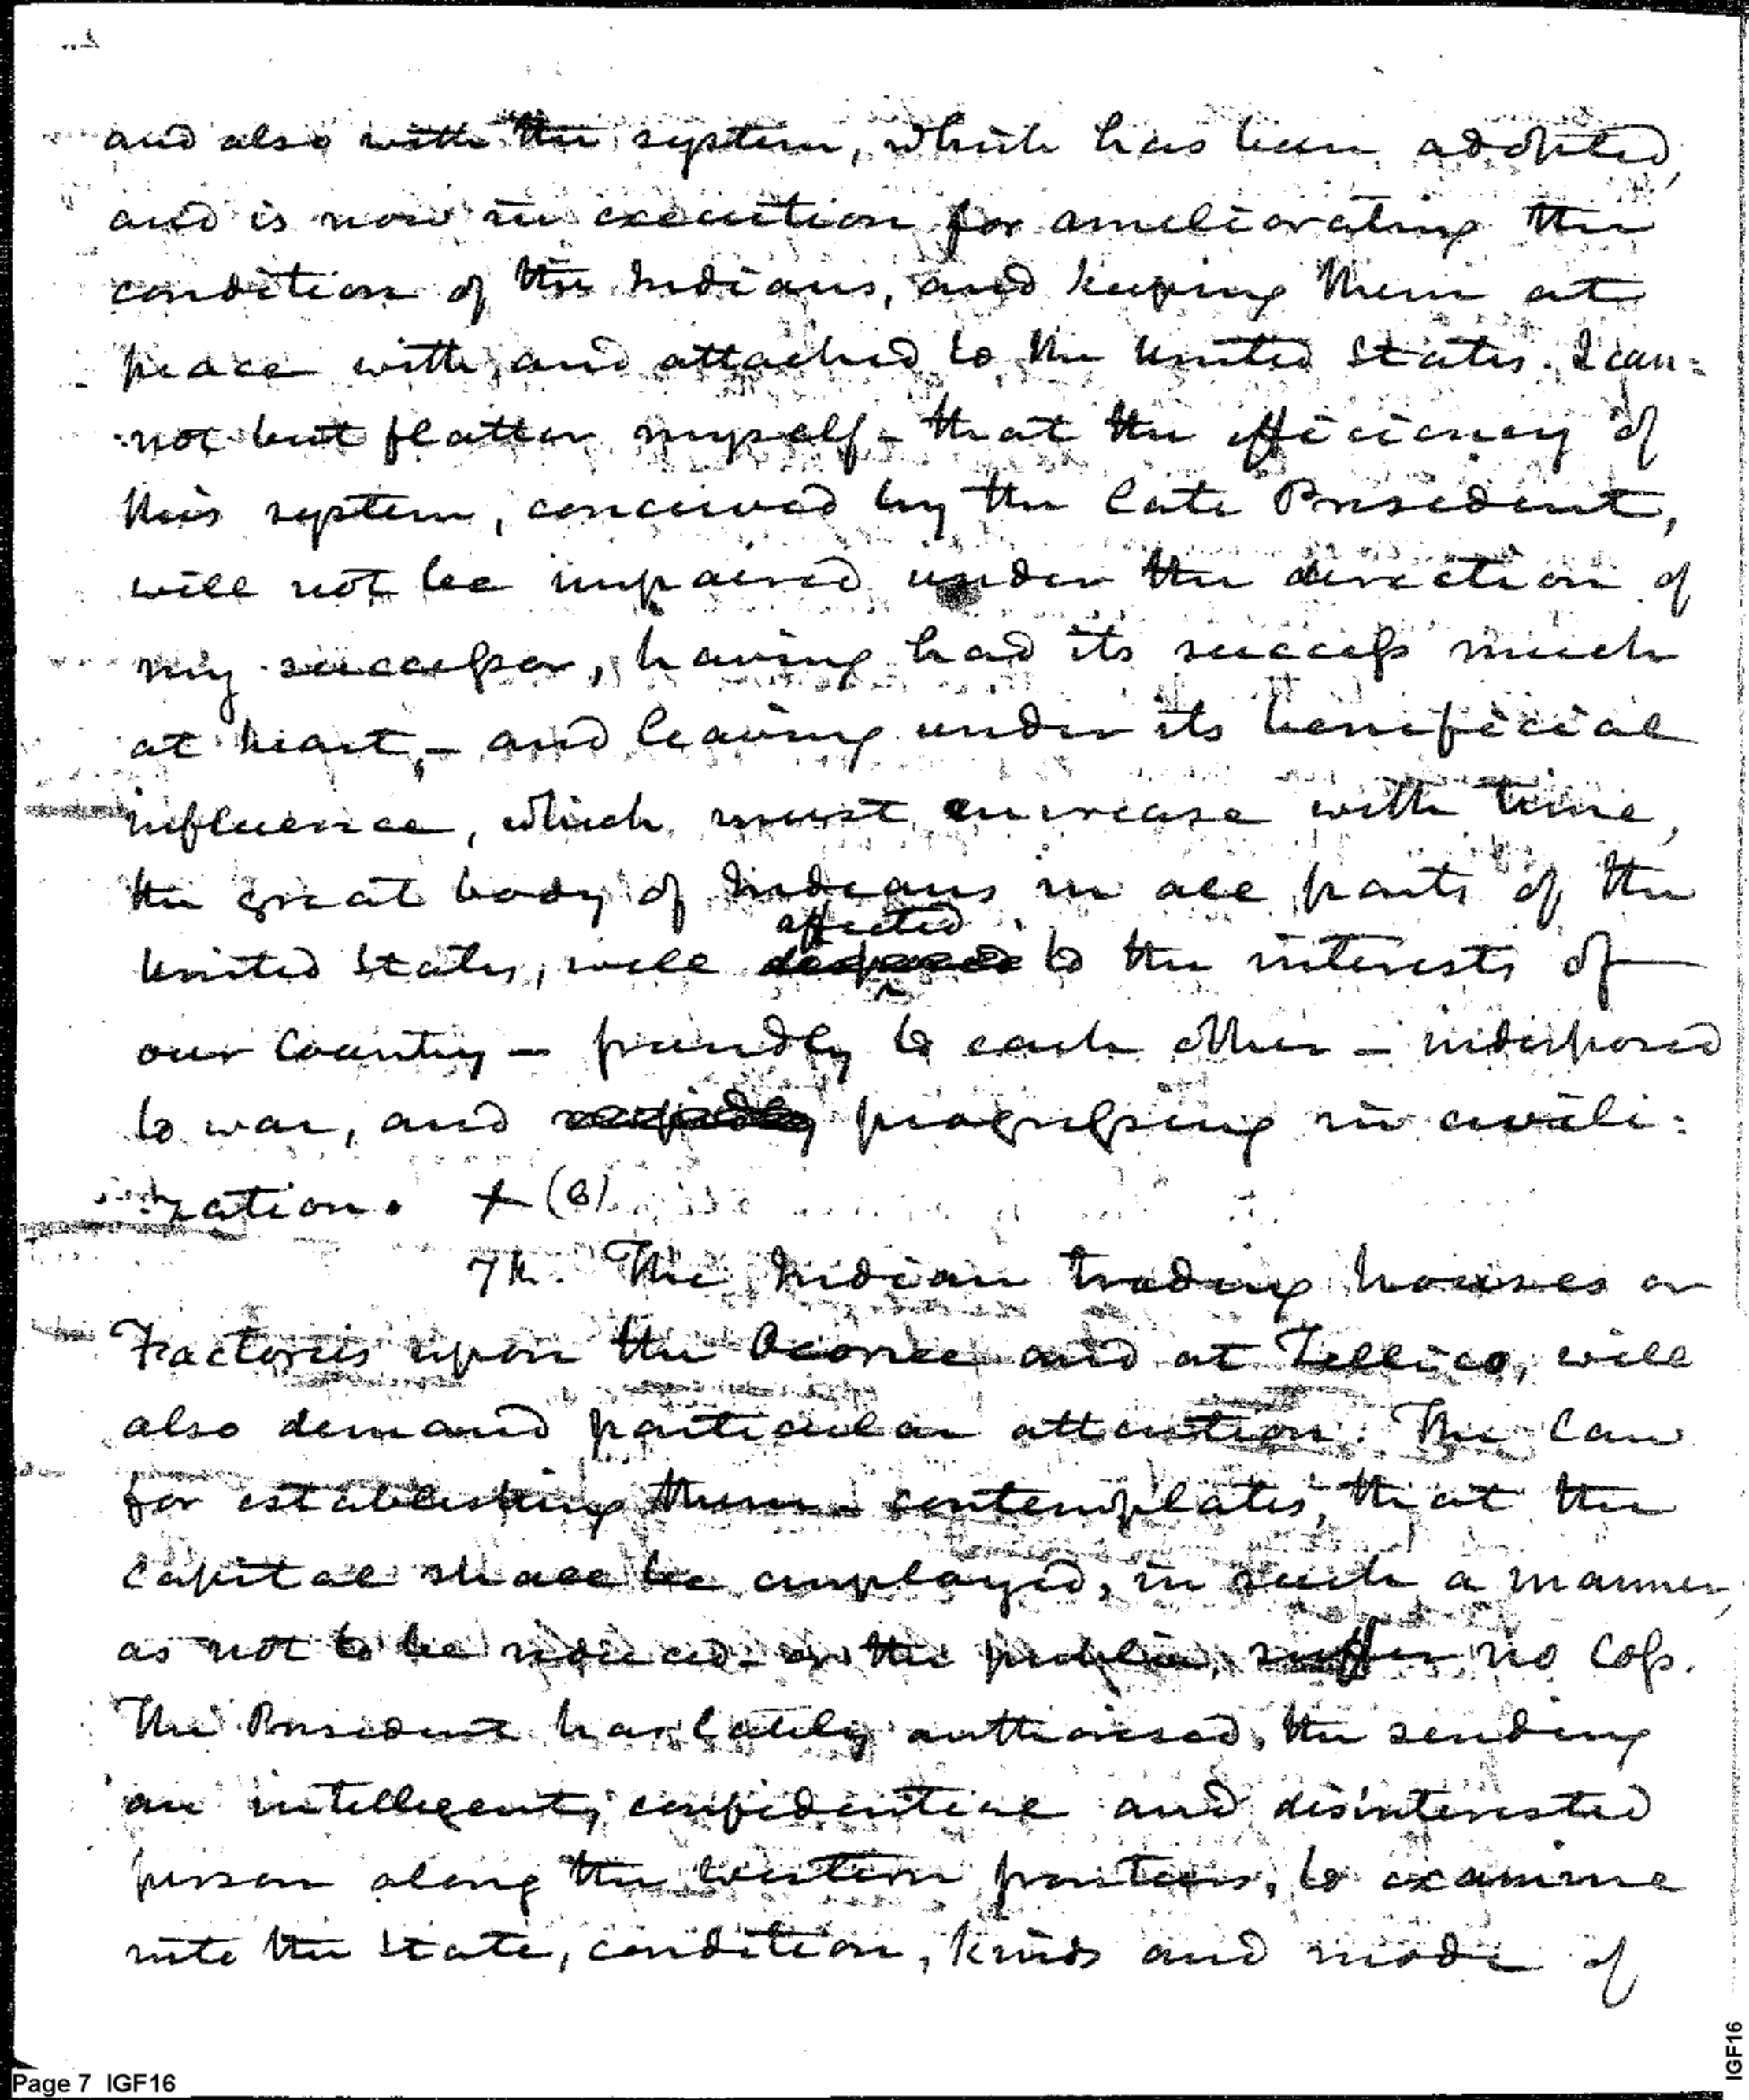 and also with the system, which has been adopted,
and is now in execution for ameliorating the
condition of the Indians, and keeping them at
peace with, and attached to the United States. I can=
not but flatter myself - that the efficiency of
this system, conceived by the late President,
will not be impaired under the direction of
my successor, having had its success much
at heart, - and leaving under its beneficial
influence, which must encrease with time,
the great body of Indians in all parts of the
affected
United States, well to the interests of
our Country - friendly to each other - indisposed
to war, and rapidly progressing in civili=
zation. + (6)
7th. The Indian trading houses or
Factories upon the Oconee and at Tellico, will
also demand particular attention. The Law
for establishing them - contemplates, that the
Capital shall be employed, in such a manner,
as not to be reduced - or the public, suffer no loss.
The President has lately authorised, the sending
an intelligent, confidential and disinterested
person along the western frontiers, to examine
into the state, condition, kinds and mode of
Page 7 IGF16
IGF16